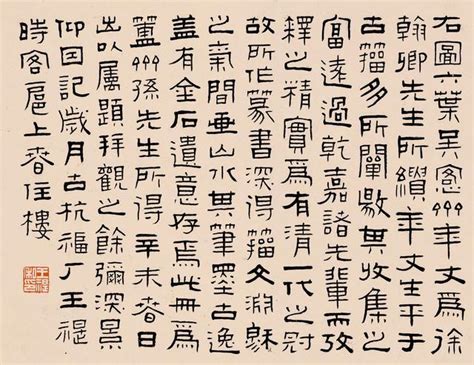 右圖六葉吳愙齋年丈為徐
翰卿先生所繢年丈生平于
古籀多所闡敭其收集之
富遠過乾嘉諸先輩而攷
釋之精實為有清一代之冠
故所作篆書深得籀文淵穆
之氣間畫山水其筆墨古逸
蓋有金石遺意存焉此冊為
簠齋孫先生所得辛未春日
出以屬題拜觀之餘彌深景
仰因記歲月古杭福厂王禔
時客扈上春住樓